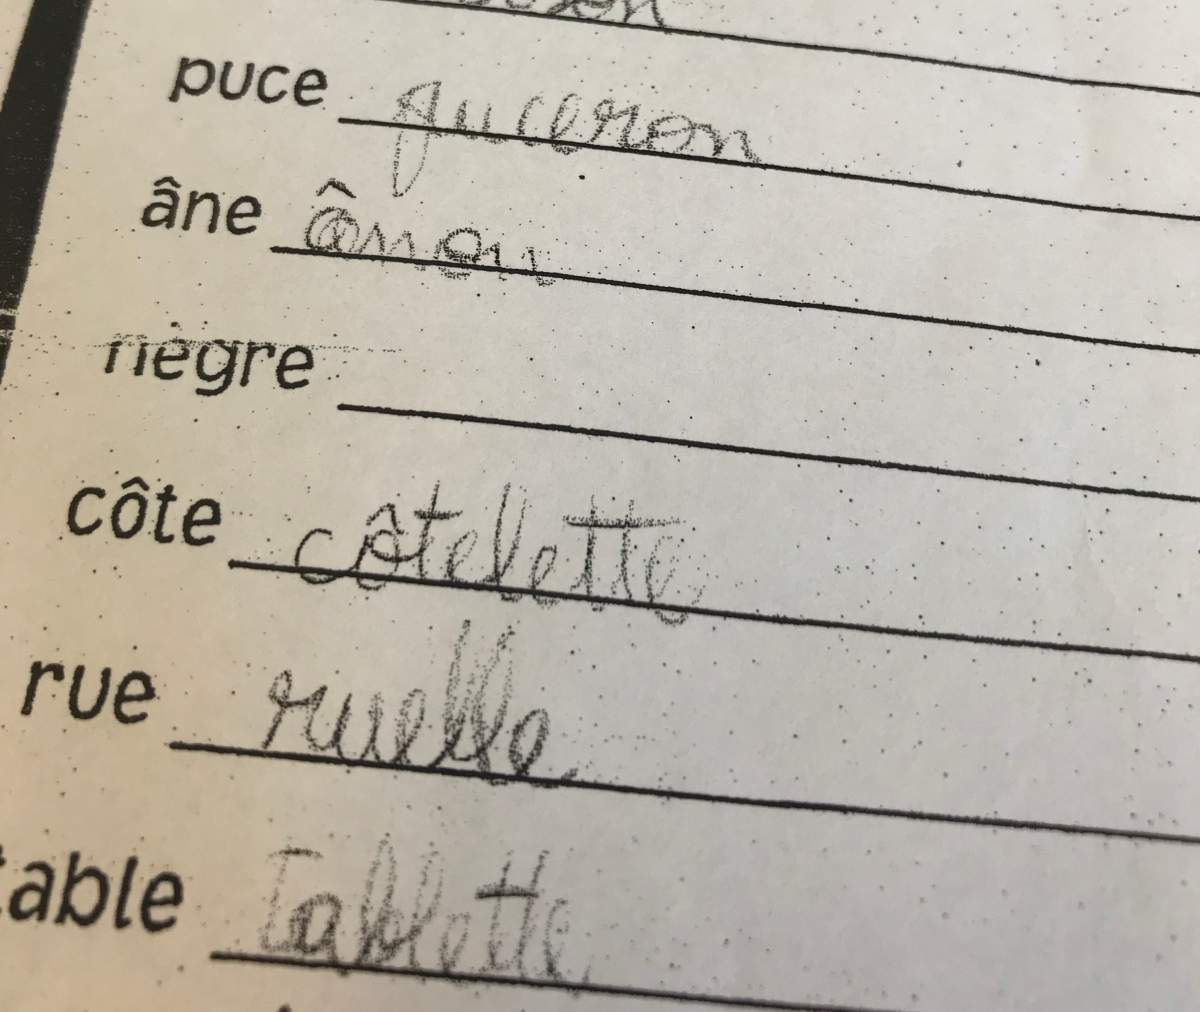 puce puceron
âne ânon
nègre
côte côtelette
rue ruelle
table Tablette